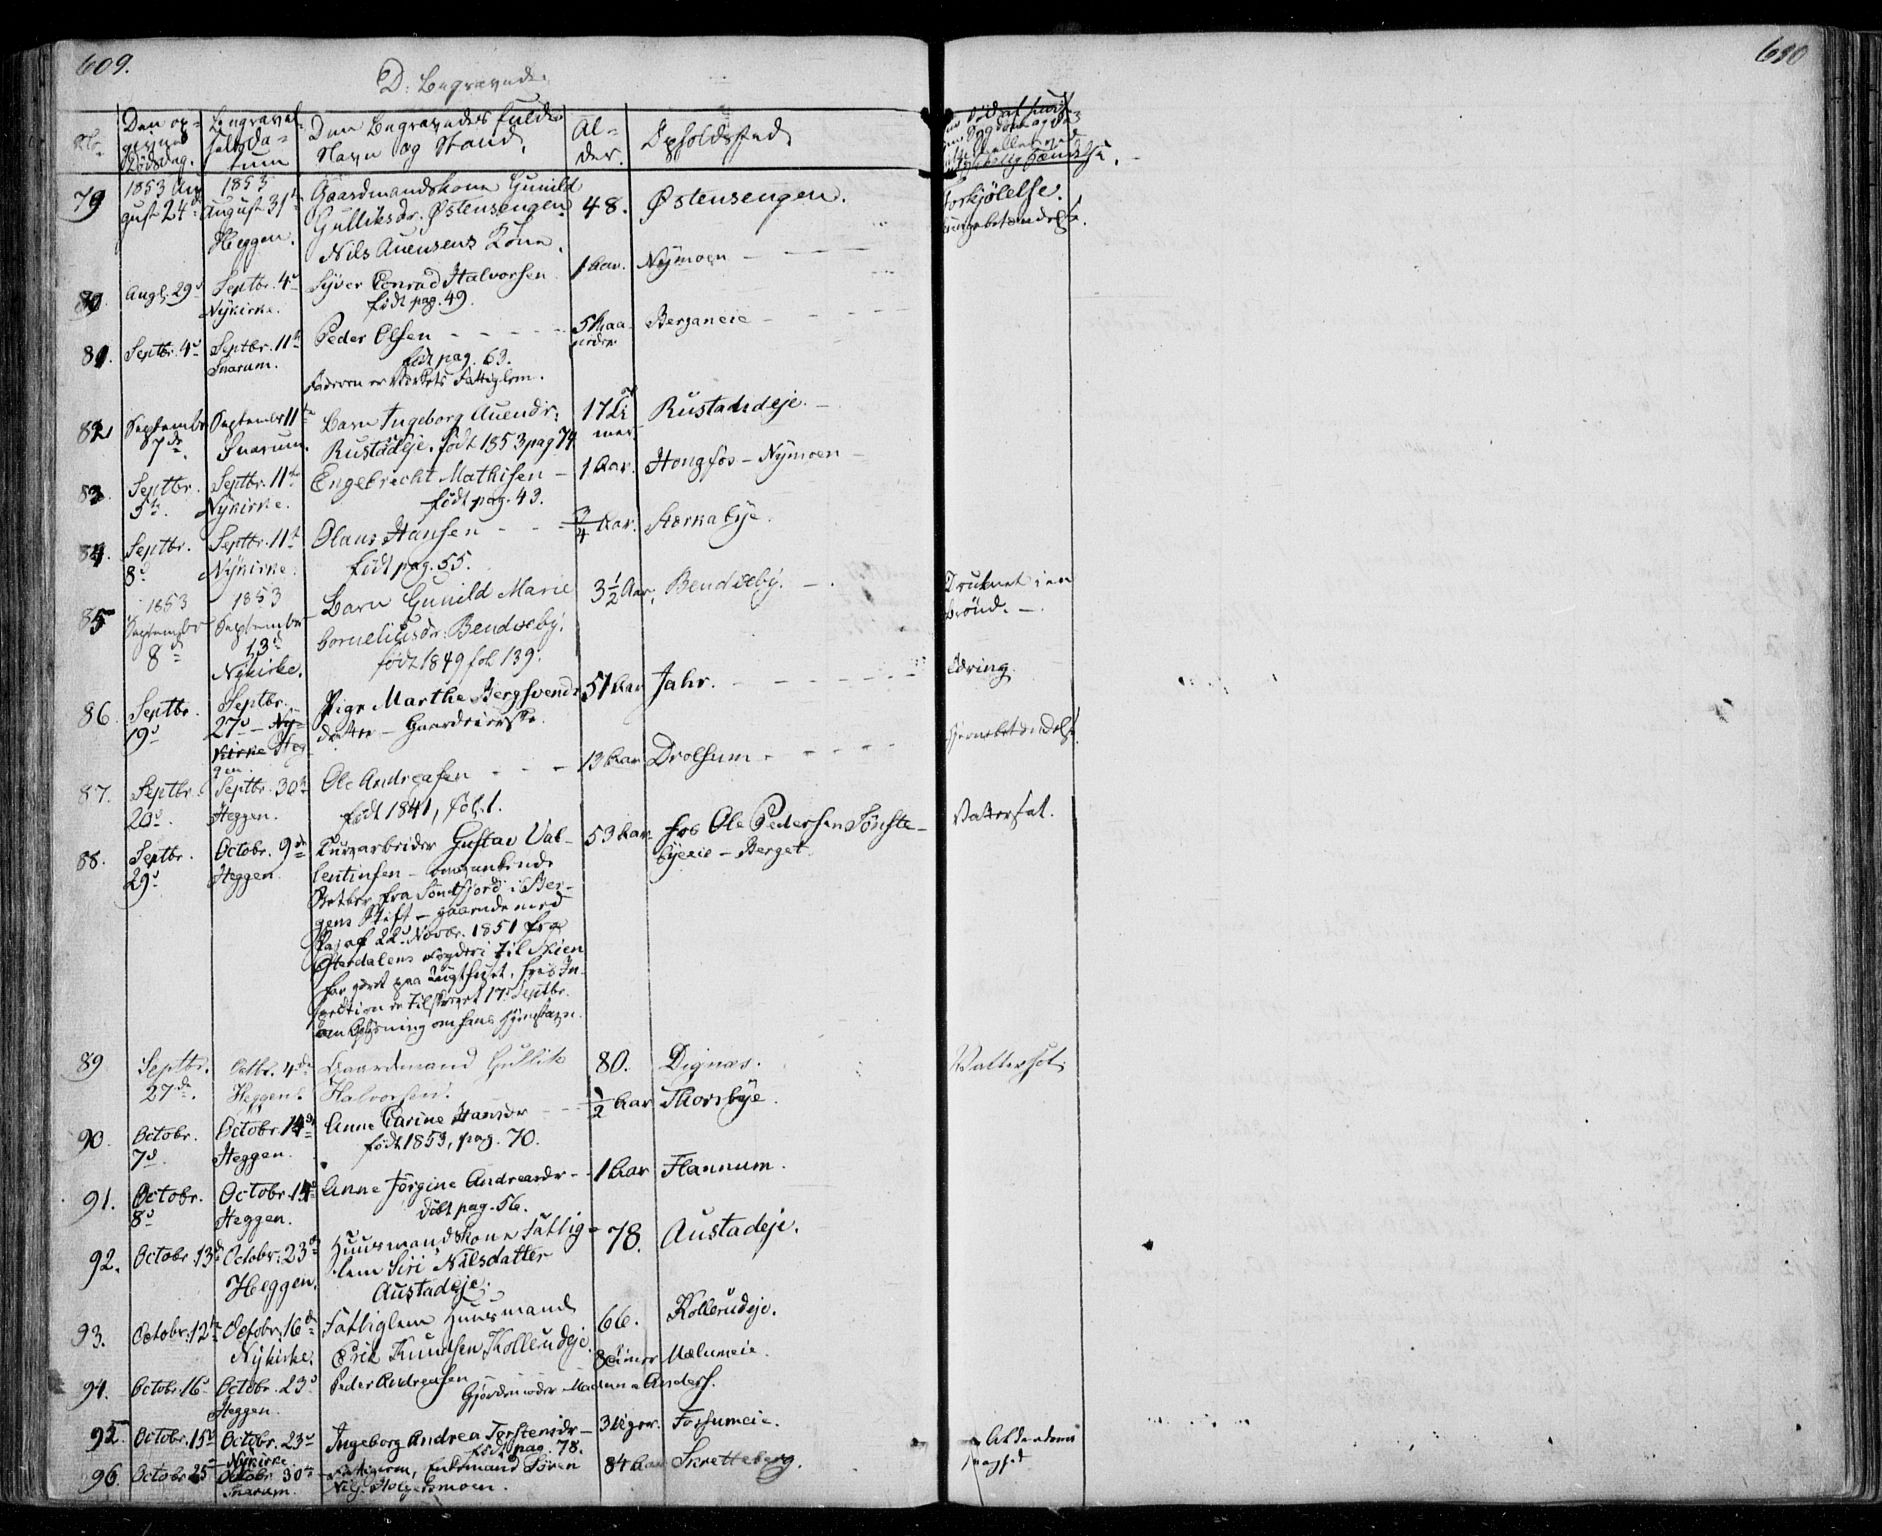 609.
610
D: Begravede.
No.
Den op-
givne
Dødsdag.
Begravel-
selsda-
tum
Den Begravedes fulde
Navn og Stand.
Al-
der.
Opholdsted
79
1853 Au
gust 24d
1853
August 31t
Heggen.
Gaardmandskone Gunild
Gulliksdr. Østensengen
Nils Auensens Kone.
48.
Østensengen.
Forkjølelse.
80.
Augt. 29d
Septbr. 4d
Nykirke.
Syver Conrad Halvorsen
født pag. 49.
1 Aar.
Nymoen
81.
Septbr. 4d
Septbr. 11te
Snarum.
Peder Olsen
født pag. 63.
Faderen er Værkets Fattiglem.
5 Maa-
neder
Berganeie
82
Septembr
7de
September 11te
Snarum.
Barn Ingeborg Auensdr.
Rustadeje. født 1853 pag 74
17 Ti
mer
Rustadeje.
83.
Septbr.
5te.
Septbr. 11te
Nykirke.
Engebrecht Mathisen
født pag. 43.
1 Aar.
Hongfos - Nymoen
84.
Septbr.
8d
Septbr. 11te
Nykirke.
Olaus Hansen
født pag. 55.
3/4 Aar.
Stærkabye.
85
1853
September
8d
1853
September
13d
Nykirke.
Barn Gunild Marie
Corneliusdr. Bendseby.
født 1849 fol 139.
3 1/2 Aar.
Bendseby.
Druknet i en
Brønd.
86.
Septbr.
19d
Septbr.
27d - Ny-
kirke Heg-
gen.
Pige Marthe Bergsvends
datter - Gaardeierske.
51 Aar
Jahr.
Tæring.
87.
Septbr.
20d.
Septbr. 30te
Heggen.
Ole Andreasen
født 1841, fol. 1.
13 Aar
Drolsum
Hjernebetændelse.
88.
Septbr.
29d
Octobr. 9de
Heggen.
Kurvarbeider Gustav Val-
lentinsen - omvankende
Betler fra Søndfjord i Ber-
gens Stift - gaaende med
Pas af 22d Novbr. 1851 fra
Østerdalens Fogderi til Skien
har været paa Tugthuset, hvis In-
spection er tilskrevet 17d Septbr.
om Oplysning om hans Hjemstavn.
53 Aar
hos Ole Pedersen Sønste-
byeeie - Berget.
Vattersot.
89
Septbr.
27de.
Octbr. 4de
Heggen.
Gaardmand Gullik
Halvorsen.
80.
Dignæs.
Vattersot.
90.
Octobr.
7d.
Octobr. 14de
Heggen.
Anne Carine Hansdr
født 1853, pag. 70.
1/2 Aar
Thorsbye.
91.
Octobr.
8d
Octobr. 14d
Heggen.
Anne Jørgine Andreasdr
født pag. 56.
1 Aar
Flannum.
92.
Octobr. 13d
Octobr. 23de
Heggen.
Huusmandskone Fattig-
lem Siri Nilsdatter
Austadeje.
78.
Austadeje.
93.
Octobr. 12te
Octobr. 16de
Nykirke.
Fattiglem Huusmand
Erik Knudsen Kollerudeje.
66.
Kollerudeje.
94.
Octobr. 16d
Octobr. 23d
Heggen.
Peder Andreasen
Gjordemoder Madam Anders.
8 Timer
Mælumeie.
95.
Octobr. 15d
Octobr. 23d
Nykirke
Ingeborg Andrea Torstensdr
født pag. 78.
3 Uger.
Forsumeie.
96.
Octobr 25d
Octobr. 30te
Snarum.
Fattiglem, Enkemand Søren
Nilsen Holgersmoen.
84 Aar
Skretteberg.
Alderdoms
svaghed